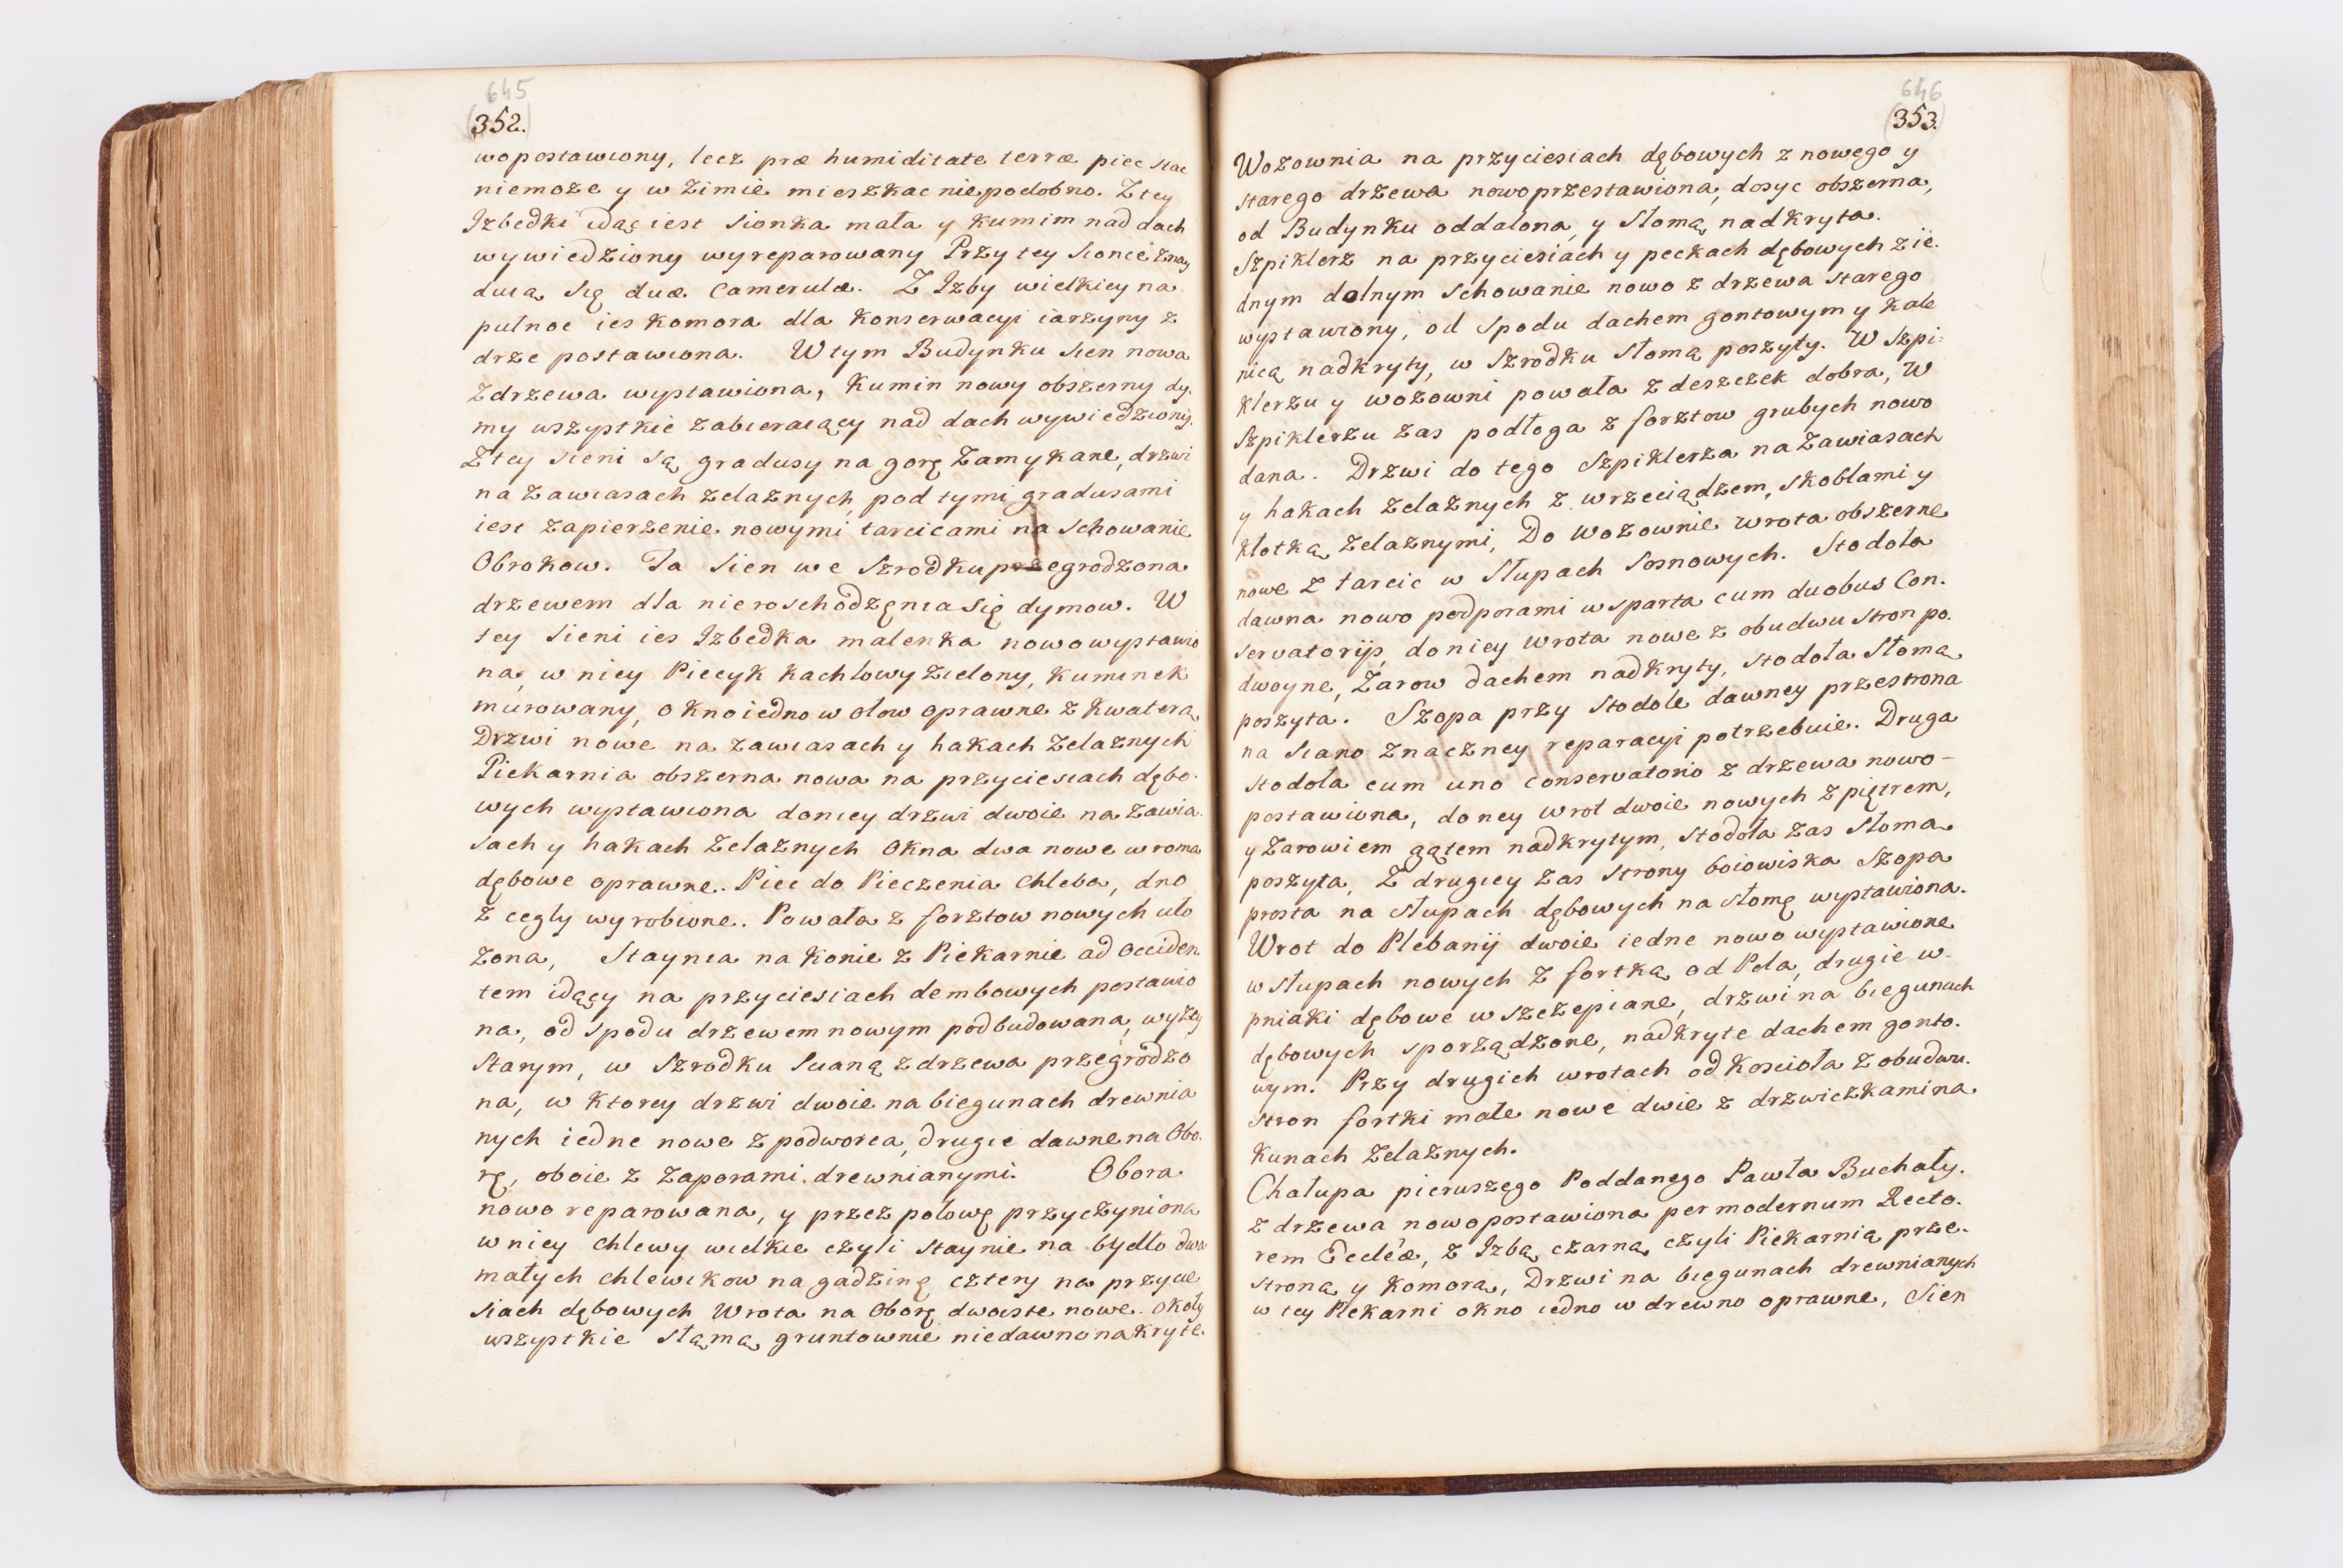 645
(352.)
wopostawiony, lecz præ humiditate terræ piec stac
niemoze y w Zimie mieszkac niepodobno. Z tey
Izbedki idąc iest Sionka mała y Kumim nad dach
wywiedziony wyreparowany Przy tey Sioncé znay
duią Się duæ Camerulæ. Z Izby wielkiey na
pułnoc ies Komora dla Konserwacyi iarzyny z
drze postawiona. W tym Budynku Sien nowa
Z drzewa wystawiona, Kumin nowy obszerny dy,
my wszystkie zabieraiący nad dach wywiedziony.
Z tey Sieni Są gradusy na gorę Zamykane, drzwi
na Zawiasach zelaznych, pod tymi gradusami
iest Zapierzenie nowymi tarcicami na Schowanie
Obrokow. Ta Sien we Szrodku przegrodzona
drzewem dla nieroschodzęnia się dymow. W
tey Sieni ies Izbedka malenka nowo wystawio
na, w niey Piecyk Kachlowy Zielony, Kuminek
murowany, okno iedno w ołow oprawne z Kwaterą
Drzwi nowe na zawiasach y hakach Zelaznych
Piekarnia obszerna nowa na przyciesiach dębo-
wych wystawiona do niey drzwi dwoie na Zawia.
sach y hakach Zelaznych Okna dwa nowe w roma
dębowe oprawne. Piec do Pieczenia Chleba, dno
z cegły wyrobione. Powała z forsztow nowych uło
zona, Staynia na Konie z Piekarnie ad Occiden.
tem idąęy na przyciesiach dembowych postawio
na, od spodu drzewem nowym podbudowana, wyzey
Starym, w Szrodku Scianą z drzewa przegrodzo
na, w Ktorey drzwi dwoie na biegunach drewnia
nych iedne nowe z podworca, drugie dawne na Obo.
rę, oboie z Zaporami drewnianymi. Obora
nowo reparowana, y przez połowę przyczyniona
w niey Chlewy wielkie czyli Staynie na bydło dwa
małych chlewikow na gadzinę cztery na przycie
siach dębowych Wrota na Oborę dwoiste nowe. Okoły
wszystkie słąmą gruntownie niedawno nakryte.
646
(353.)
Wozownia na przyciesiach dębowych z nowego y
starego drzewa nowoprzestawiona, dosyc obszerna,
od Budynku oddalona, y Słomą nadkryta.
Szpiklerz na przyciesiach y peckach dębowych z ie.
dnym dolnym Schowanie nowo z drzewa starego
wystawiony, od Spodu dachem gontowym y Kale
nicą nadkryty, w Szrodku Słomą poszyty. W Szpi-
klerzu y wozowni powała z deszczek dobra, W
Szpiklerzu zas podłoga z forsztow grubych nowo
dana. Drzwi do tego Szpiklerza na Zawiasach
y hakach Zelaznych z wrzeciądzem, Skoblami y
kłotką Zelaznymi, Do Wozownie wrota obszerne
nowe z tarcic w Słupach Sosnowych. Stodoła
dawna nowo podporami wsparta cum duobus Con.
servatorijs, do niey Wrota nowe z obudwu stron po.
dwoyne, Zarow dachem nadkryty, stodoła Słomą
poszyta. Szopa przy Stodole dawney przestrona
na Siano znaczney reparacyi potrzebuie. Druga
stodoła cum uno Conservatorio z drzewa nowo-
postawiona, do ney Wrot dwoie nowych z piętrem,
y Zarowiem gątem nadkrytym, stodoła zas Słoma
poszyta, Z drugiey zas Strony boiowiska Szopa
prosta na słupach dębowych na słomę wystawiona.
Wrot do Plebanij dwoie iedne nowo wystawione
w słupach nowych z fortką od Pola, drugie w-
pniaki dębowe wszczepiane, drzwi na biegunach
dębowych sporządzone, nadkryte dachem gonto.
wym. Przy drugich wrotach od Kosciola z obudwu.
stron fortki małe nowe dwie z drzwiczkami na
Kunach Zelaznych.
Chałupa pierwszego Poddanego Pawła Buchały.
z drzewa nowopostawiona per modernum Recto.
rem Ecclæ, z Izbą czarną czyli Piekarnią prze-
stroną y Komorą, Drzwi na biegunach drewnianych
w tey Piekarni okno iedno w drewno oprawne, Sien